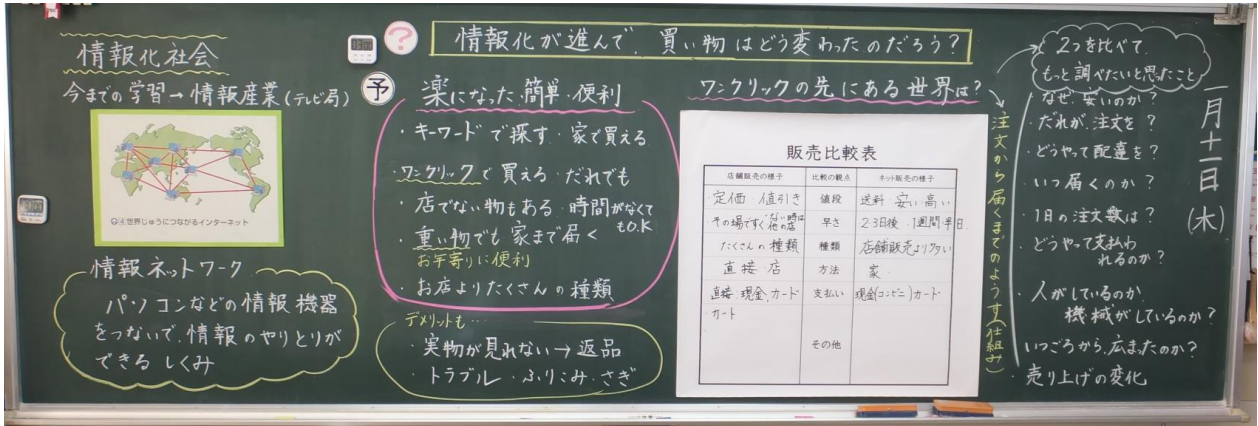 情報化社会
今までの学習→情報産業(テレビ局)
④世界じゅうにつながるインターネット
情報ネットワーク
パソコンなどの情報機器
をつないで、情報のやりとりが
できるしくみ
?
情報化が進んで、買い物はどう変わったのだろう?
予
楽になった・簡単・便利
・キーワードで探す・家で買える
・ワンクリックで買える・だれでも
・店でない物もある・時間がなくても
O.K
・重い物でも家まで届く
お年寄りに便利
・お店よりたくさんの種類
デメリットも…
・実物が見れない→返品
・トラブル・ふりこみ・さぎ
ワンクリックの先にある世界は?
販売比較表
店舗販売の様子 比較の観点 ネット販売の様子
定価 値引き 値段 送料 安い 高い
その場ですぐ ない時は他の店 早さ 2-3日後 1週間 半日
たくさんの種類 種類 店舗販売より多い
直接 店 方法 家
直接 現金、カード 支払い 現金(コンビニ)カード
カード
その他
注文から届くまでのようす(仕組み)
2つを比べて、
もっと調べたいと思ったこと
・なぜ、安いのか?
・だれが、注文を?
・どうやって配達を?
・いつ届くのか?
・1日の注文数は?
・どうやって支払わ
れるのか?
・人がしているのか
機械がしているのか?
・いつごろから、広まったのか?
・売り上げの変化
一月十一日(木)